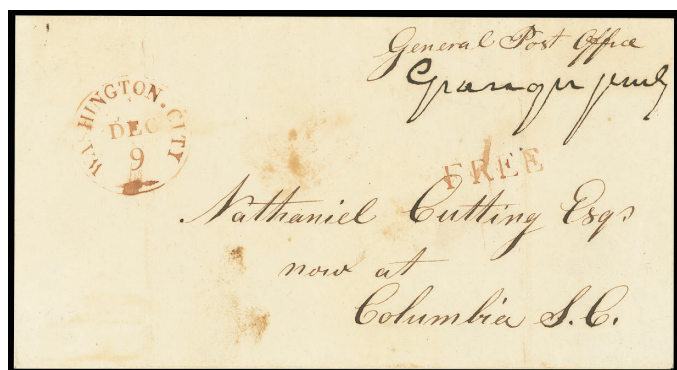 General Post Office
Granger junr
WASHINGTON. CITY
DEC
9
FREE
Nathaniel Cutting Esqr
now at
Columbia S.C.